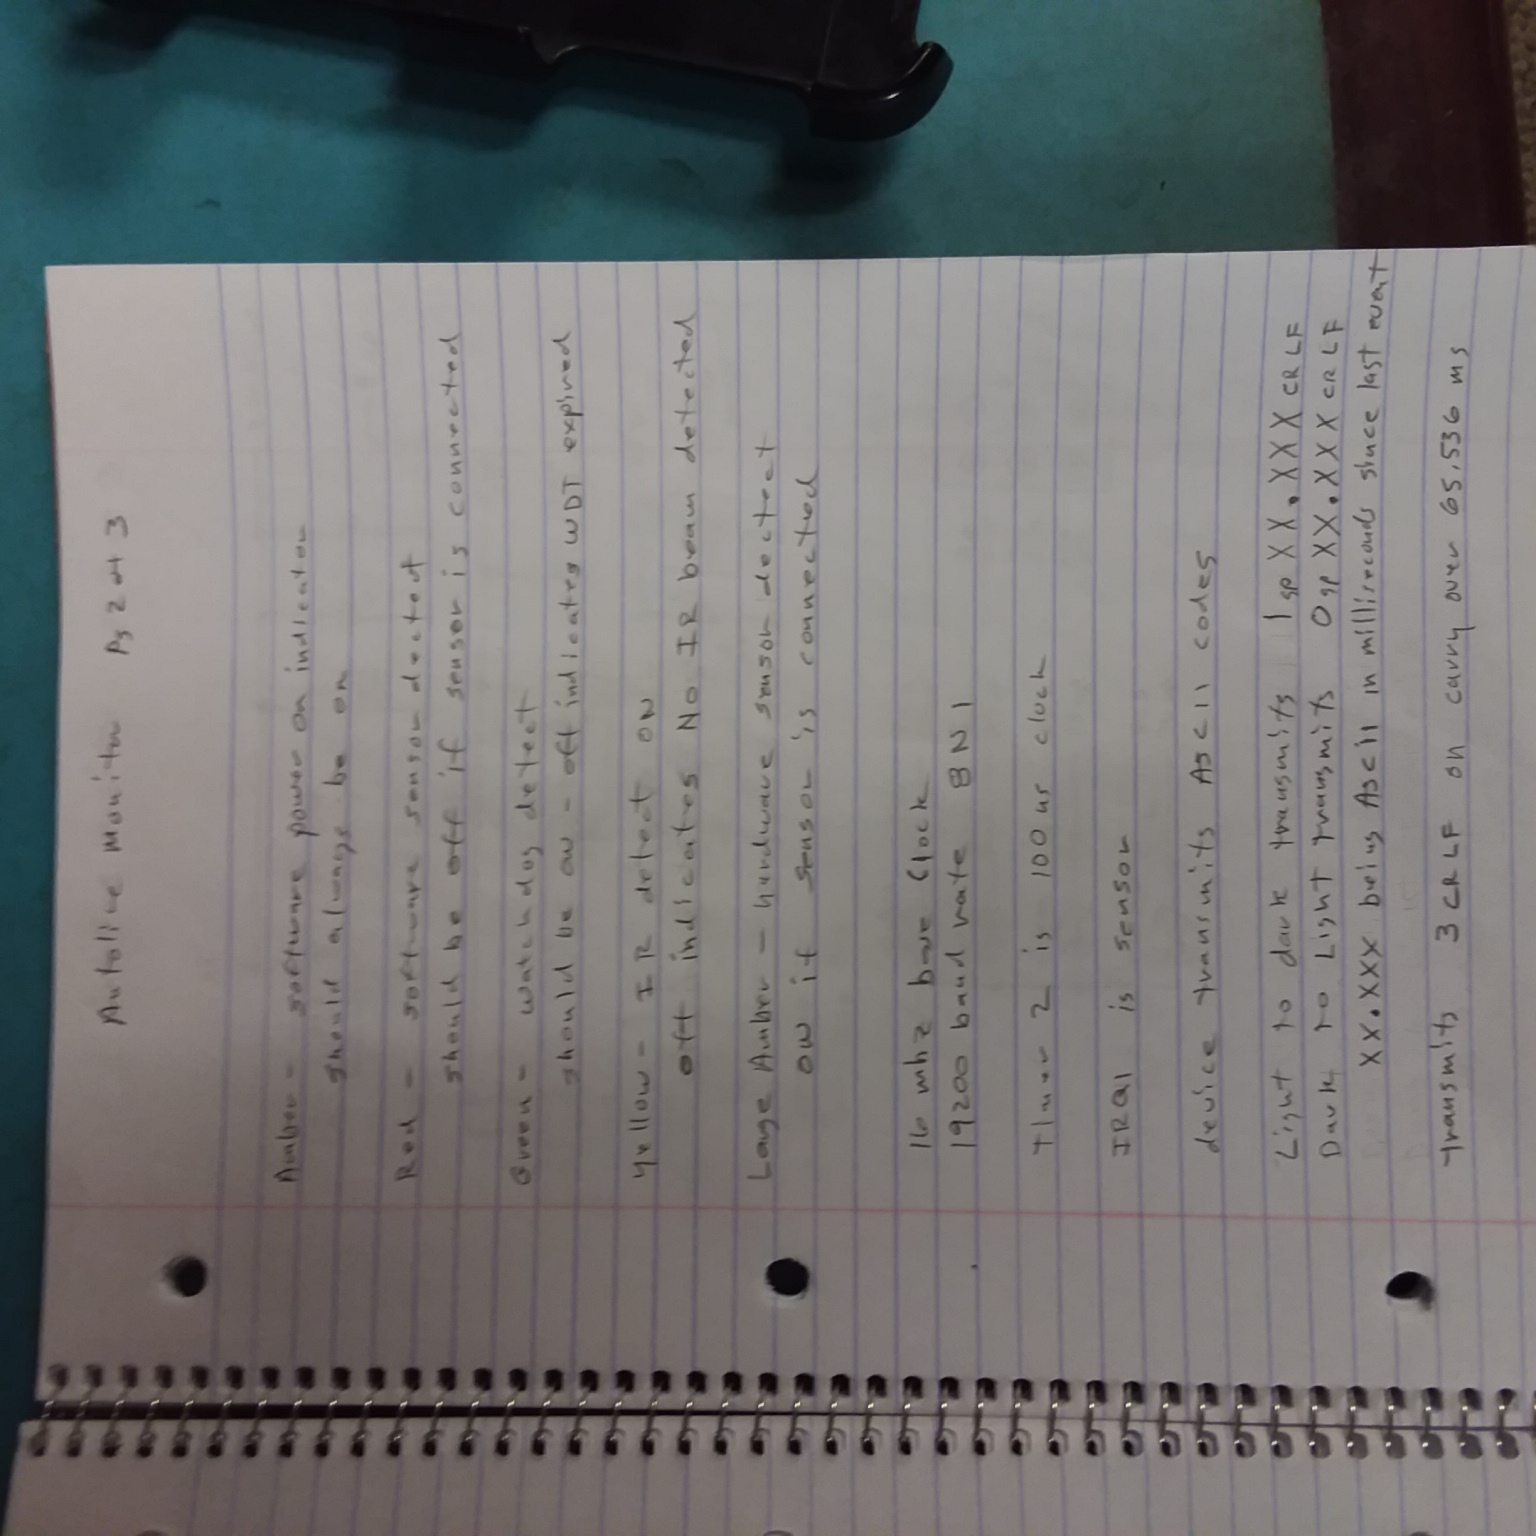 Autolive Monitor Pg 2 of 3
Amber - software power on indicator
should always be on
Red - software sensor dectect
should be off if sensor is connected
Green - watchdog detect
should be on - off indicates WDT expired
Yellow - IR detect ON
off indicates No IR beam detected
Large Amber - hardware sensor dectect
ON if sensor is connected
16 mhz base Clock
19200 baud rate 8N1
Timer 2 is 100 us clock
IRQ1 is sensor
device transmits ASCII codes
Light to dark transmits 1 sp XX.XXX CR LF
Dark to Light transmits 0 sp XX.XXX CR LF
XX.XXX being ASCII in milliseconds since last event
transmits 3 CR LF on carry over 65.536 ms